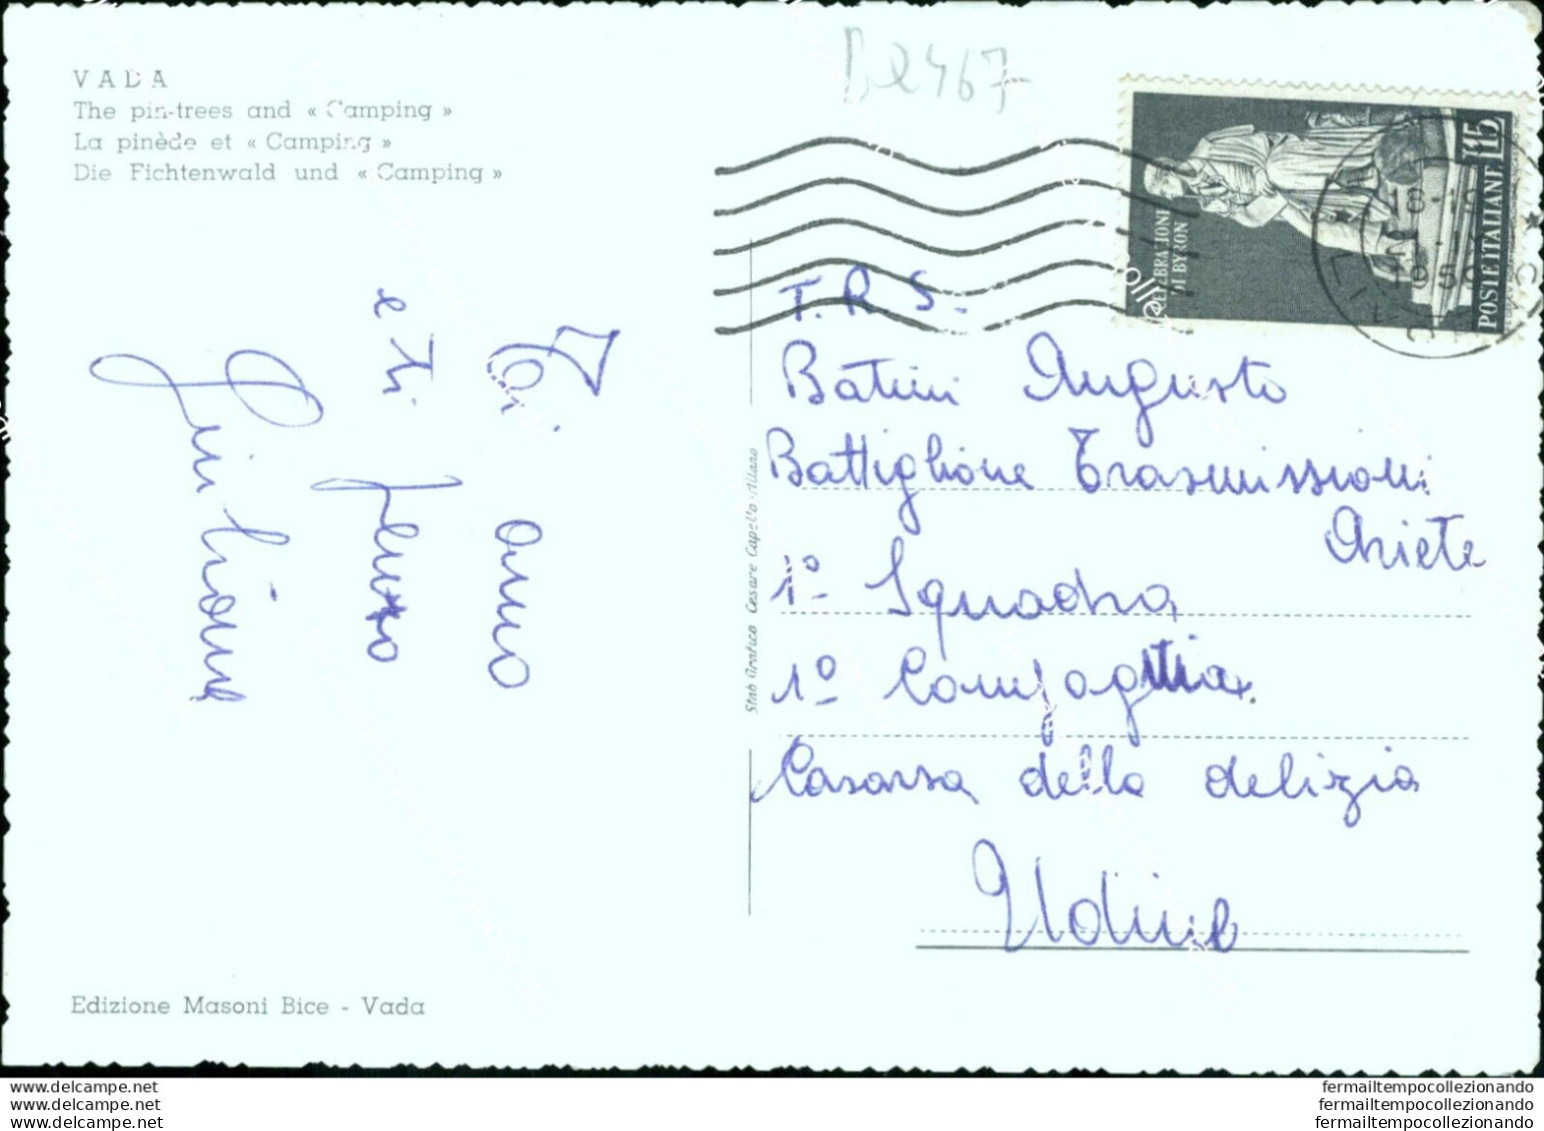 VADA
The pin-trees and « Camping »
La pinède et « Camping »
Die Fichtenwald und « Camping »
Be467
CELEBRAZIONI
DI BYRON
POSTE ITALIANE L.15
18-19
1959
T.R.S.
Batini Augusto
Battiglione Trasmissioni
Ariete
1º Squadra
1º Compagnia
Casarsa della delizia
Udine
Ti amo
e Ti penso
Giuliana
Stab Grafico Cesare Capello-Milano
Edizione Masoni Bice - Vada
www.delcampe.net
www.delcampe.net
www.delcampe.net
fermailtempocollezionando
fermailtempocollezionando
fermailtempocollezionando